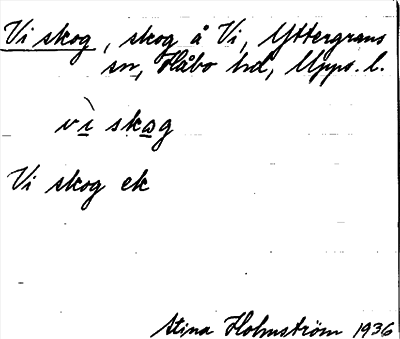 Vi skog, skog å Vi, Yttergrans
sn, Håbo hd, Upps. l.
vì skog
Vi skog ek
Stina Holmström 1936